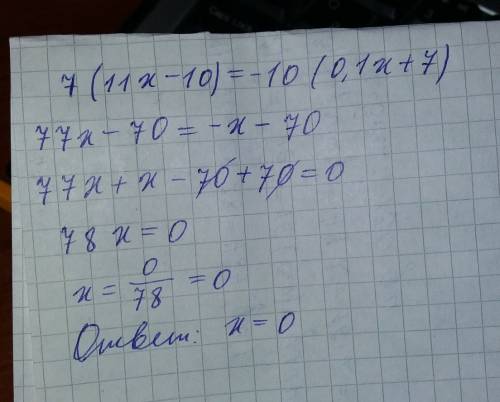 7 (11x-10) = -10 (0,1x+7)
77x - 70 = -x - 70
77x + x - 70 + 70 = 0
78 x = 0
x = 0/78 = 0
Ответ: x = 0